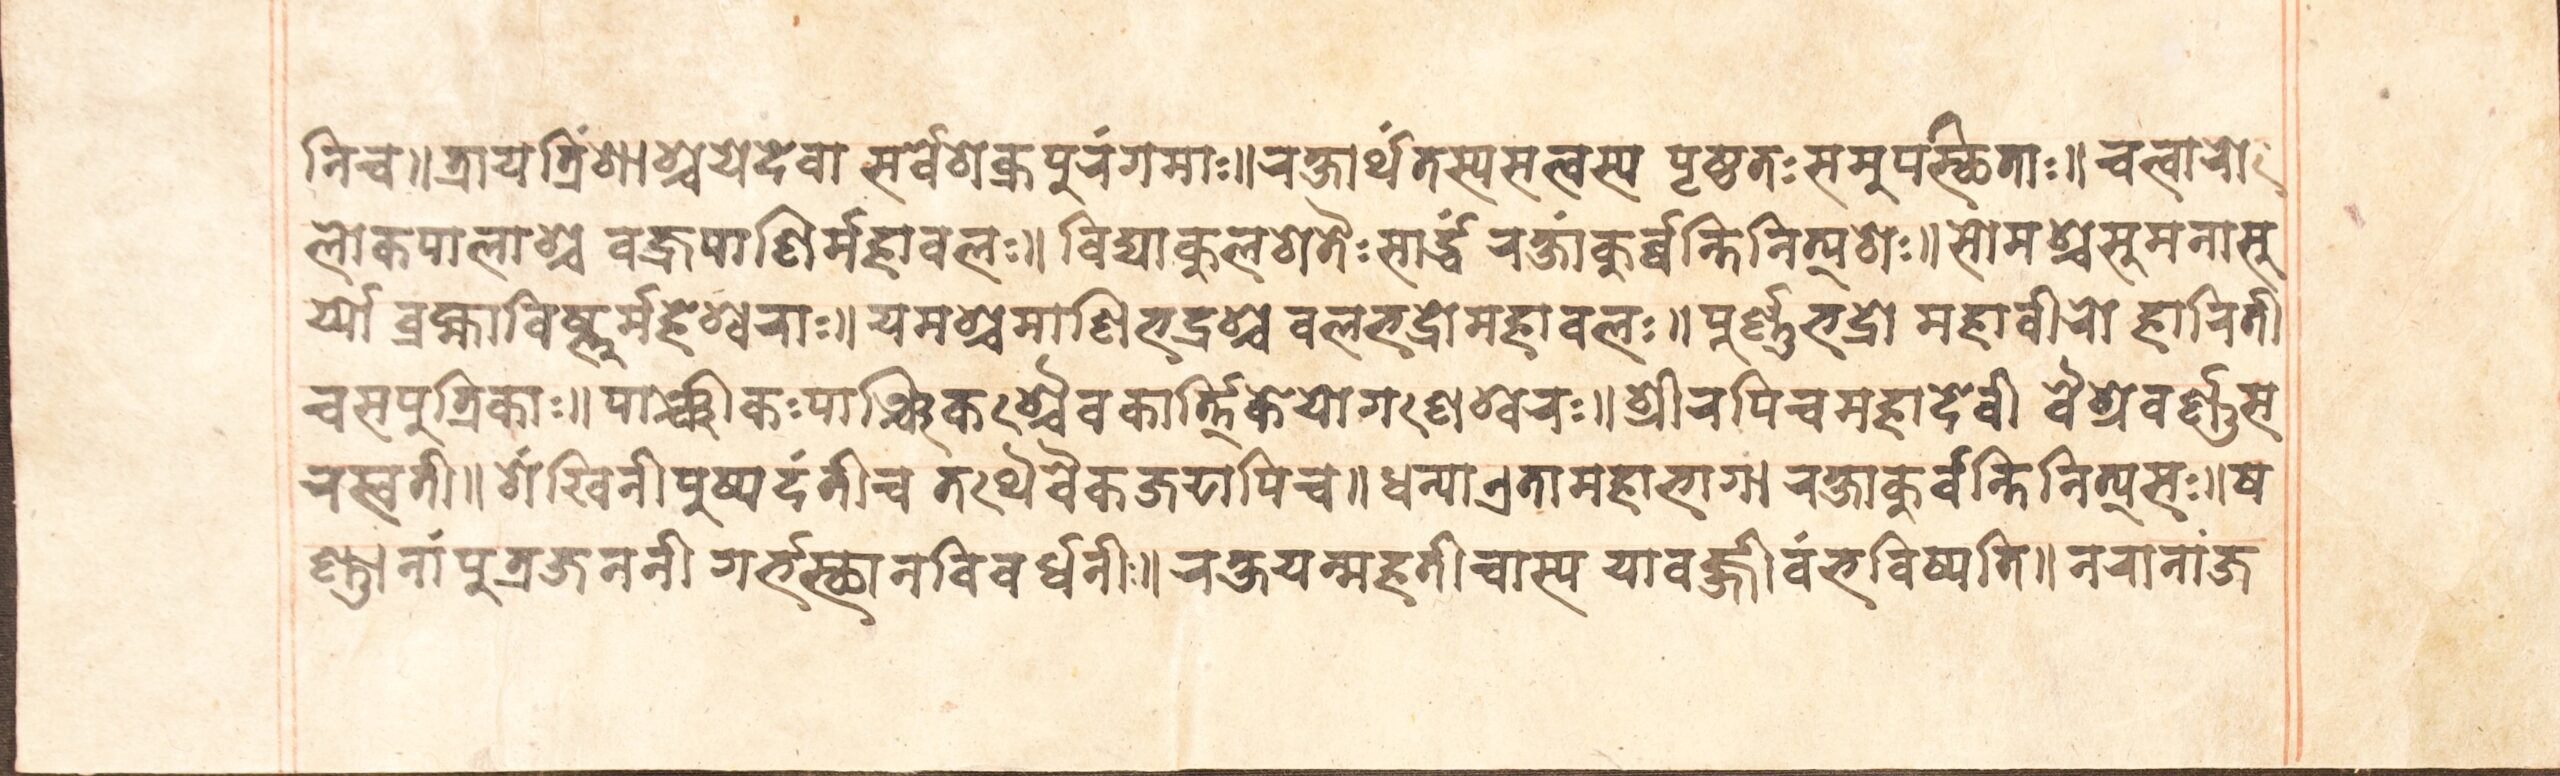 निच॥त्रायत्रिंशाश्चयेदेवा सर्वेशक्रपुरंगमाः॥रक्षार्थंतस्यसत्वस्य पृष्ठतःसमुपस्थिताः॥चत्वारो
लोकपालाश्च वज्रपाणिर्महावलः॥विद्याकुलशतैःसार्द्धं रक्षांकुर्व्वन्तिनित्यशः॥सोमश्चसुमनासु
र्य्यो ब्रह्माविष्णुर्महेश्वराः॥यमश्चमाणिभद्रश्च वलभद्रोमहावलः॥पुर्ण्णभद्रो महावीरो हारिती
चसपुत्रिकाः॥पाञ्चीकःपाञ्चिकश्चैवकार्त्तिकेयोगणेश्वरः॥श्रीरपिचमहादेवी वैश्रवर्ण्णस
रस्वती॥शंखिनीपुष्पदंतीच तथैवैकजटापिच॥धन्याएतामहाभागा रक्षाकुर्वन्तिनित्यसः॥ष
ण्ढानांपुत्रजननी गर्भस्थानविवर्धनीः॥रक्षयन्महतीचास्य यावज्जीवंभविष्यति॥नरानांज